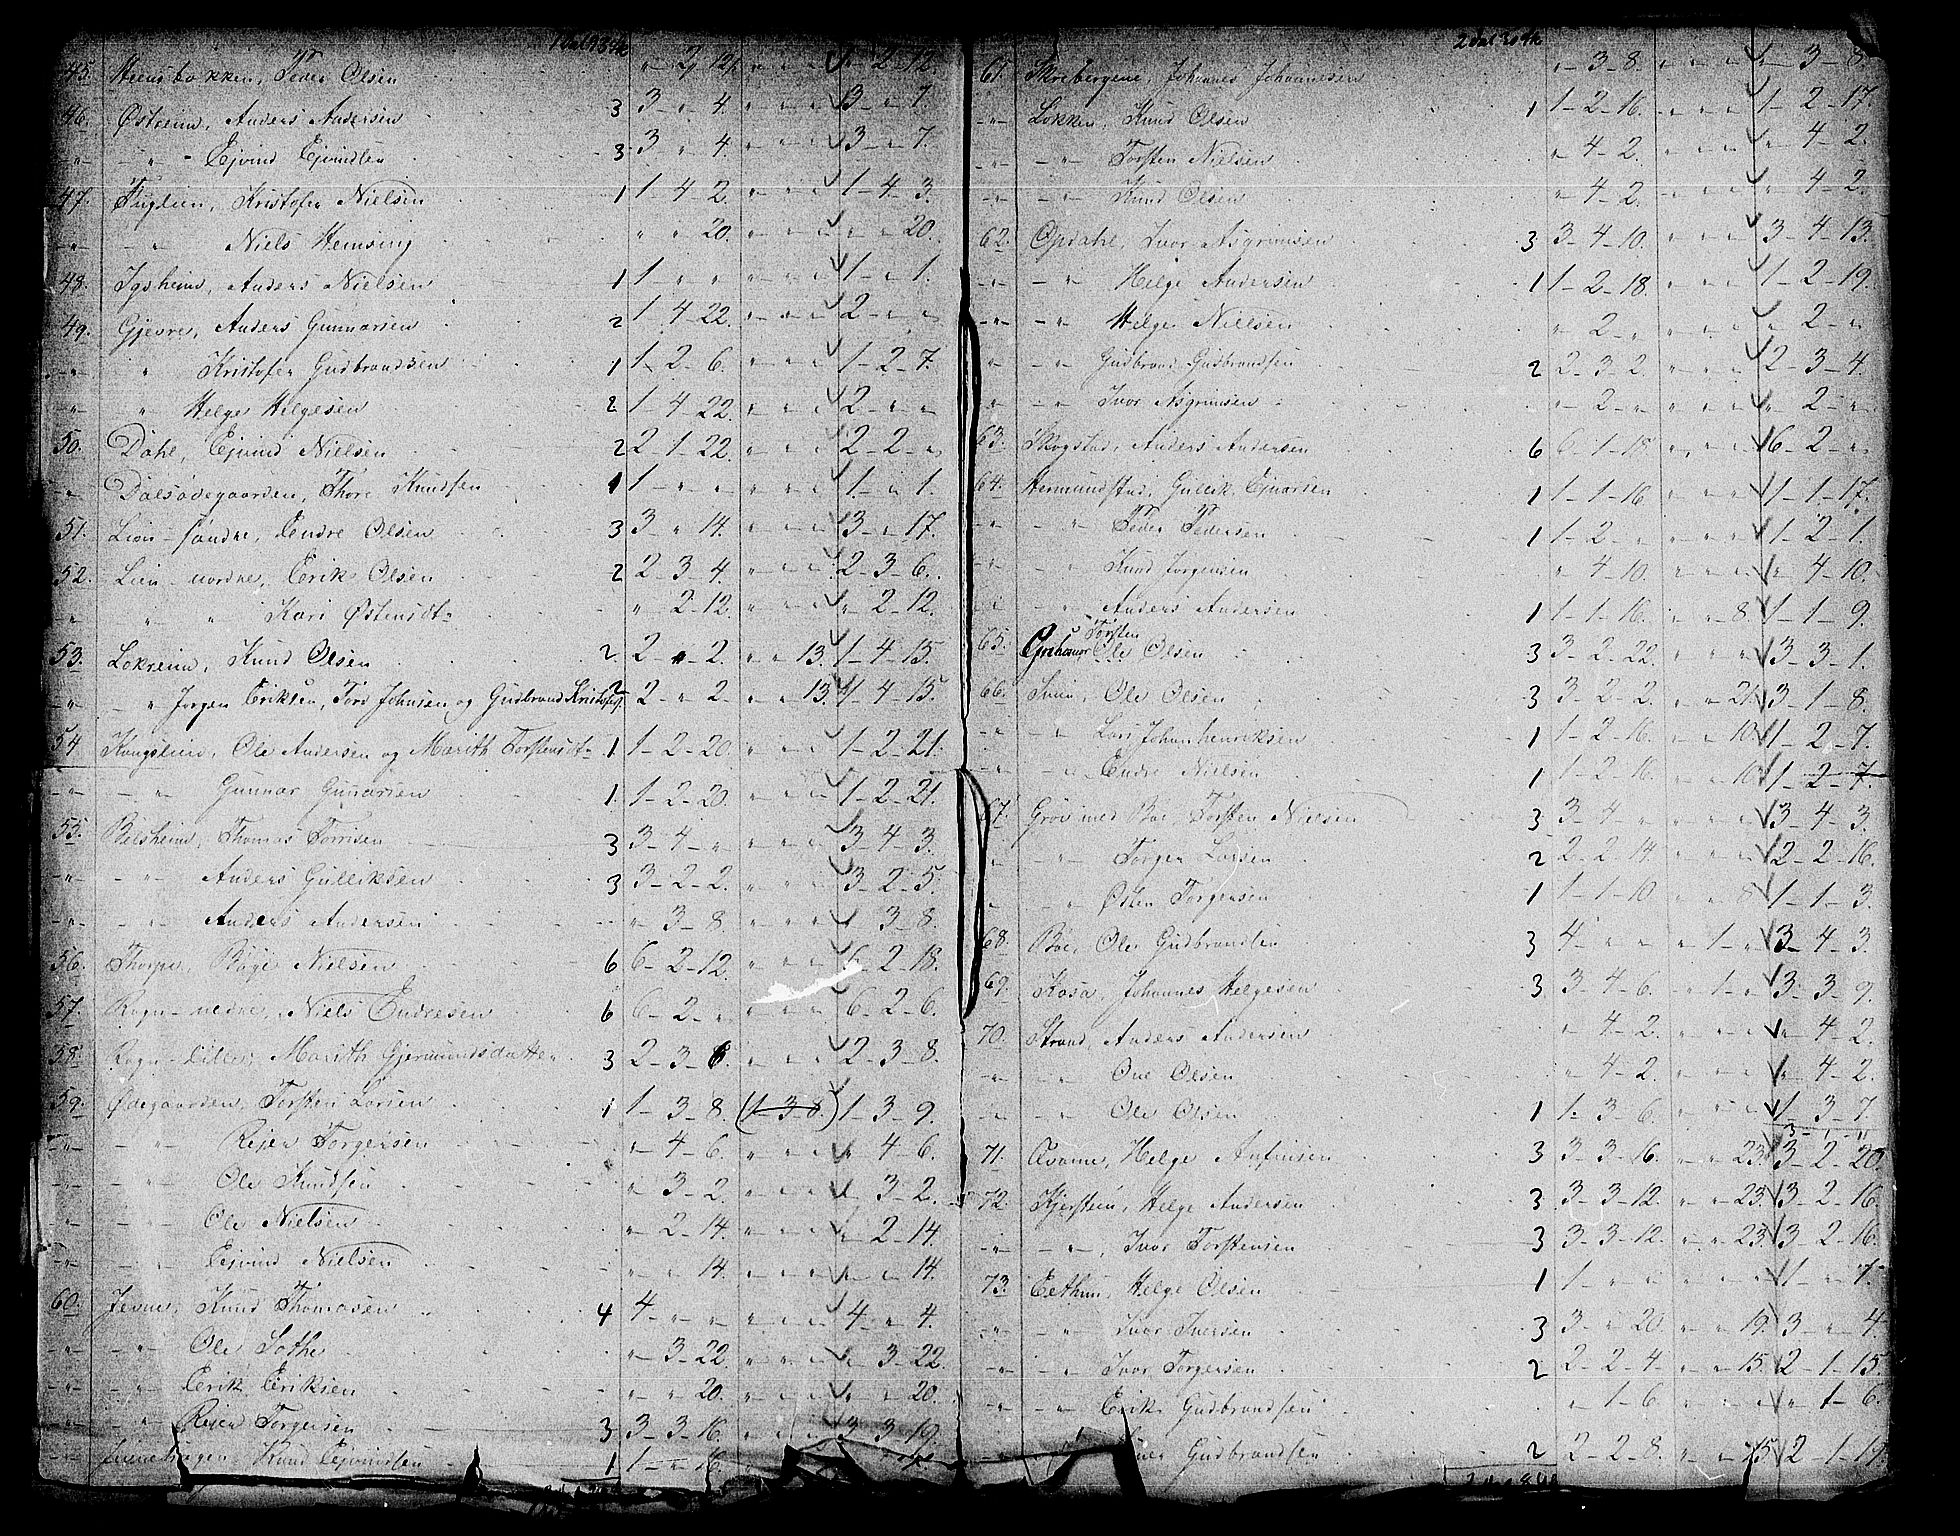 45. Steensbakken, Peder Olsen " 2 12. " " " " 2 12.
46. Østreim, Anders Andersen 3 3 " 4. " " " 3 " 7.
" " Ejvind Ejvindsen 3 3 " 4. " " " 3 " 7.
47. Fuglien, Kristofer Nielsen 1 1 4 2. " " " 1 4 3.
" " Niels Hemsing " " 20. " " " " " 20.
48. Igsheim, Anders Nielsen 1 1 " " " " " 1 " 1.
49. Gjevre, Anders Gunnarsen 2 1 4 22. " " " 2 " "
" " Kristofer Gudbrandsen 1 1 2 6. " " " 1 2 7.
" " Helge Helgesen 2 1 4 22. " " " 2 " "
50. Dahl, Ejvind Nielsen 2 2 1 22. " " " 2 2 "
" Dalsødegaarden, Thore Knudsen 1 1 " " " " " 1 " 1.
51. Lien søndre, Endre Olsen 3 3 " 14. " " " 3 " 17.
52. Lien nordre, Erik Olsen 2 2 3 4. " " " 2 3 6.
" " " Kari Østensdt " 2 12. " " " " 2 12.
53. Lokreim, Knud Olsen 2 2 " 2. " " 13. 1 4 15.
" " Jørgen Eriksen, Tord Johnsen og Gudbrand Kristofs. 2 2 " 2. " " 13. 1 4 15.
54 Kongslien, Ole Andersen og Marith Torstensdt 1 1 2 20. " " " 1 2 21.
" " Gunnar Gunnarsen 1. 1 2 20. " " " 1 2 21.
55. Belsheim, Thomas Torrisen 3 3 4 " " " " 3 4 3.
" " Anders Gulliksen 3 3 2 2. " " " 3 2 5.
" " Anders Andersen " 3 8. " " " " 3 8.
56. Thorpe, Bøye Nielsen 6 6 2 12. " " " 6 2 18.
57. Rogn nedre, Niels Endresen 6 6 2 " " " " 6 2 6.
58. Rogn lille, Marith Gjermundsdatter 3 2 3 6. " " " 2 3 8.
59. Ødegaarden, Torsten Larsen 1 1 3 8. (1 3 8.) 1 3 9.
" " Rejer Torgersen " 4 6. " " " " 4 6.
" " Ole Knudsen " 3 2. " " " " 3 2.
" " Ole Nielsen " 2 14. " " " " 2 14.
" " Ejvind Nielsen " " 14. " " " " " 14.
60. Jevne, Knud Thomasen 4 4 " " " " " 4 " 4.
" " Ole Sothe " 3 22. " " " " 3 22.
" " Erik Eriksen " " 20. " " " " " 20.
" " Rejer Torgersen 3 3 3 16. " " " 3 3 19.
Knud Ejvindsen 1 1 " 16.
61. Skrebergene, Johannes Johannesen " 3 8. " " " " 3 8.
" Løkken, Knud Olsen 1 1 2 16. " " " 1 2 17.
" " Torsten Nielsen " 4 2. " " " " 4 2.
" " Knud Olsen " 4 2. " " " " 4 2.
62. Opdahl, Ivor Asgrimsen 3 3 4 10. " " " 3 4 13.
" " Helge Andersen 1 1 2 18. " " " 1 2 19.
" " Helge Nielsen " 2 " " " " " 2 "
" " Gudbrand Gudbrandsen 2 2 3 2. " " " 2 3 4.
" " Ivor Asgrimsen " 2 " " " " " 2 "
63. Skogstad, Anders Andersen 6 6 1 18. " " " 6 2 "
64. Hermundstad, Gullik Ejnarsen 1 1 1 16 " " " 1 1 17.
" " Peder Pedersen 1 1 2 " " " " 1 2 1.
" " Knud Jørgensen " 4 10. " " " " 4 10.
" " Anders Andersen 1 1 1 16. " " 8. 1 1 9.
Torsten
65. Grihamar Ole Olsen 3 3 2 22. " " " 3 3 1.
66. Sriin, Ole Olsen 3 3 2 2. " " 21. 3 1 8.
" " Lars Johanhenriksen 1 1 2 16. " " 10. 1 2 7.
" " Endre Nielsen 1 1 2 16. " " 10. 1 2 7.
67. Grøv med Bøe, Torsten Nielsen 3 3 4 " " " " 3 4 3.
" " Torger Larsen 2 2 2 14. " " " 2 2 16.
" " Østen Torgersen 1 1 1 10 " " 8 1 1 3.
68. Bøe, Ole Gudbrandsen 3 4 " " " 1 " 3 4 3.
69. Kasa, Johannes Helgesen 3 3 4 6. " 1 " 3 3 9.
70. Strand, Anders Andersen " 4 2. " " " " 4 2.
" " Ole Olsen " 4 2. " " " " 4 2.
" " Ole Olsen 1 1 3 6. " " " 1 3 7.
71. Qvame, Helge Anfinsen 3 3 3 16. " " 23. 3 2 20.
72. Kjerstein, Helge Andersen 3 3 3 12. " " 23. 3 2 16.
" " Ivor Torstensen 3 3 3 12. " " 23. 3 2 16.
73. Eethun, Helge Olsen 1 1 " " " " " 1 " 1.
" " Ivor Iversen 3 3 " 20. " " 19. 3 " 4.
" " Ivor Torgersen 2 2 2 4. " " 15. 2 1 15.
" " Erik Gudbrandsen " 1 6. " " " " 1 6.
Gudbrandsen 2 2 2 8. " " 15. 2 1 19.